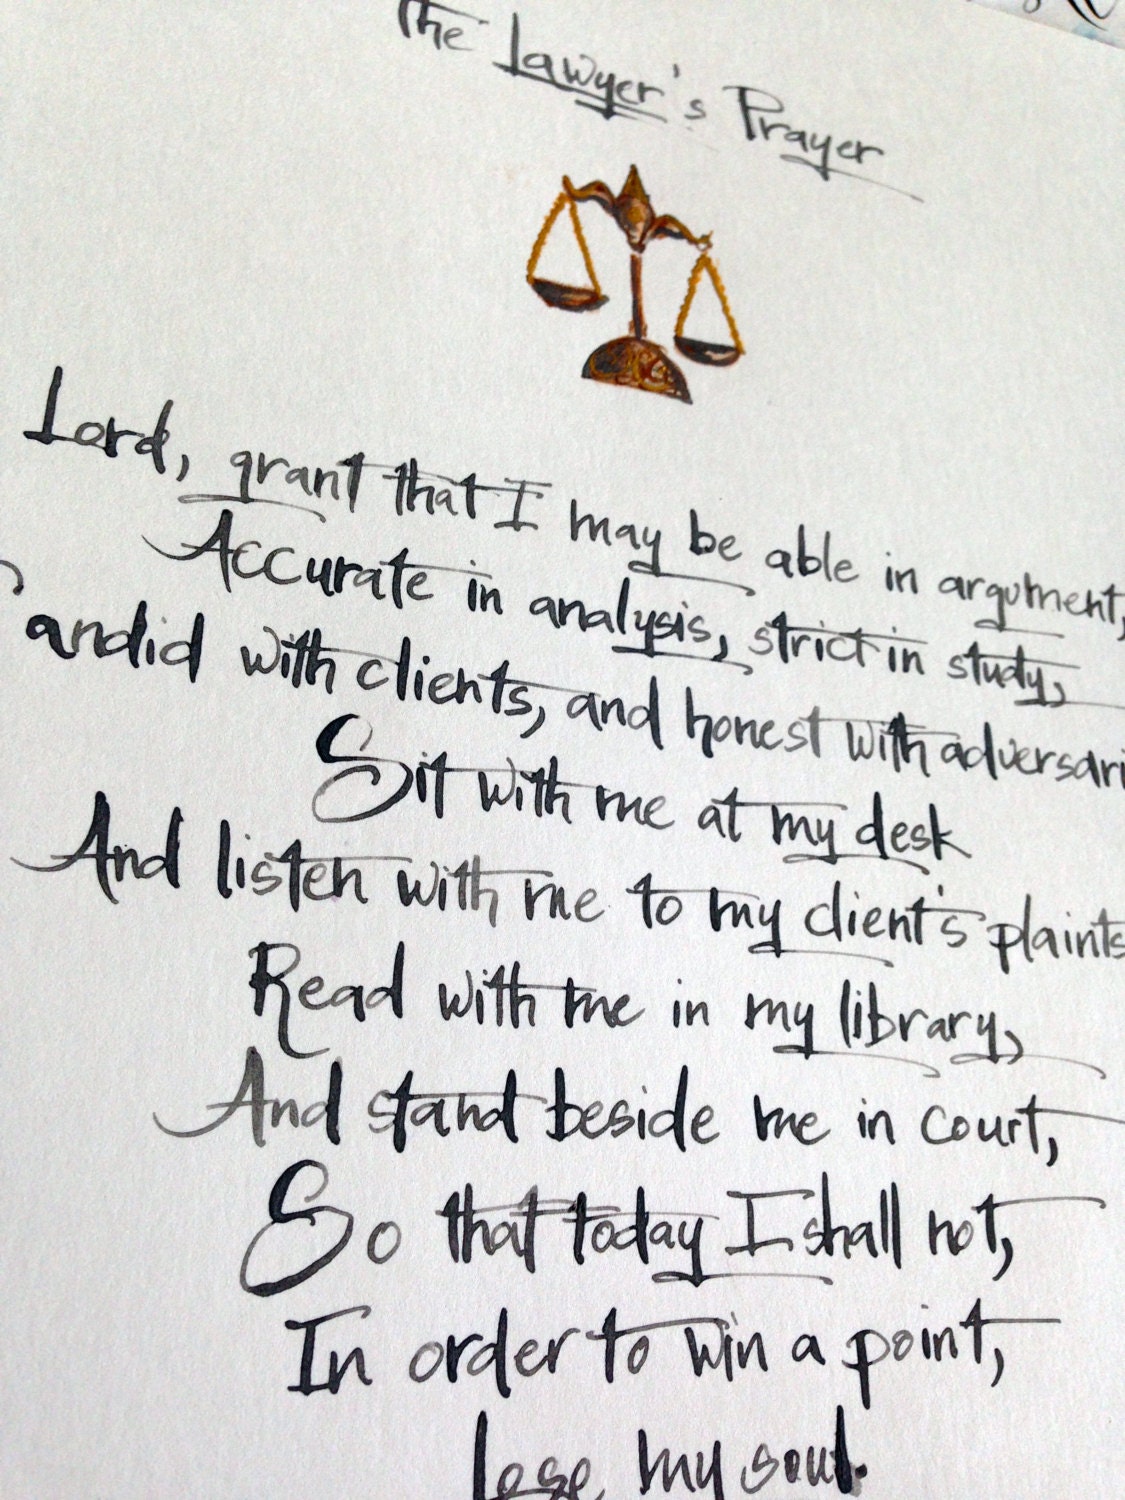 The Lawyer's Prayer
Lord, grant that I may be able in argument,
Accurate in analysis, strict in study,
andid with clients, and honest with adversari
Sit with me at my desk
And listen with me to my client's plaints
Read with me in my library,
And stand beside me in court,
So that today I shall not,
In order to win a point,
Lose my soul.